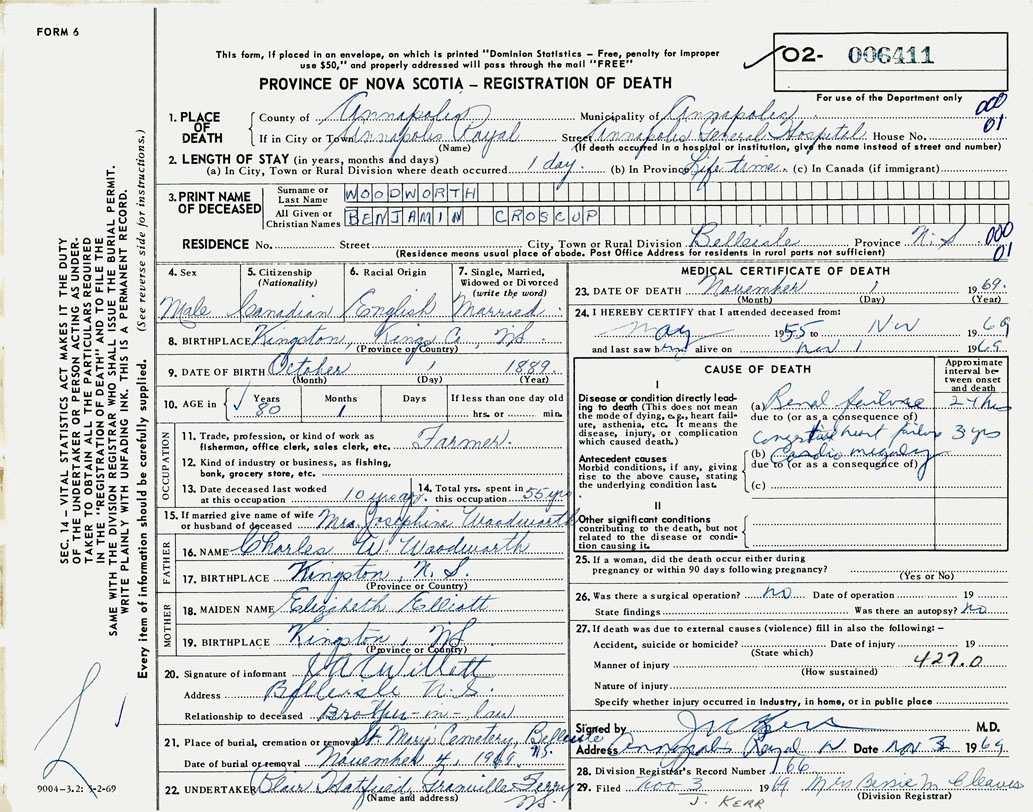 FORM 6
This form, if placed in an envelope, on which is printed "Dominion Statistics – Free, penalty for improper
use $50," and properly addressed will pass through the mail "FREE"
02- 006411
For use of the Department only
PROVINCE OF NOVA SCOTIA – REGISTRATION OF DEATH
1. PLACE OF DEATH
County of Annapolis Municipality of Annapolis 000
If in City or Town Annapolis Royal Street Annapolis General Hospital House No. 01
(Name) (If death occurred in a hospital or institution, give the name instead of street and number)
2. LENGTH OF STAY (in years, months and days)
(a) In City, Town or Rural Division where death occurred 1 day. (b) In Province Life time. (c) In Canada (if immigrant)
3. PRINT NAME OF DECEASED
Surname or Last Name WOODWORTH
All Given or Christian Names BENJAMIN CROSCUP
RESIDENCE No. Street City, Town or Rural Division Belleisle Province N.S 000
(Residence means usual place of abode. Post Office Address for residents in rural parts not sufficient) 01
4. Sex
Male
5. Citizenship
(Nationality)
Canadian
6. Racial Origin
English
7. Single, Married,
Widowed or Divorced
(write the word)
Married
8. BIRTHPLACE Kingston, Kings Co, NS
(Province or Country)
9. DATE OF BIRTH October 1 1889.
(Month) (Day) (Year)
10. AGE in Years Months Days If less than one day old
80 1 hrs. or min.
OCCUPATION
11. Trade, profession, or kind of work as
fisherman, office clerk, sales clerk, etc. Farmer.
12. Kind of industry or business, as fishing,
bank, grocery store, etc.
13. Date deceased last worked
at this occupation 10 yrs ago
14. Total yrs. spent in
this occupation 55 yrs.
15. If married give name of wife
or husband of deceased Mrs. Josephine Woodworth
FATHER
16. NAME Charles W. Woodworth
17. BIRTHPLACE Kingston, N.S.
(Province or Country)
MOTHER
18. MAIDEN NAME Elizabeth Elliott
19. BIRTHPLACE Kingston, NS
(Province or Country)
20. Signature of informant Willett
Address Belleisle N.S.
Relationship to deceased Brother-in-law
21. Place of burial, cremation or removal St. Mary's Cemetery, Belleisle
N.S.
Date of burial or removal November 4, 1969.
22. UNDERTAKER Blair Hatfield, Granville Ferry
(Name and address) N.S.
MEDICAL CERTIFICATE OF DEATH
23. DATE OF DEATH November 1 1969.
(Month) (Day) (Year)
24. I HEREBY CERTIFY that I attended deceased from:
May 1955 to Nov 1969
and last saw him alive on Nov 1 1969.
CAUSE OF DEATH
Approximate interval between onset and death
I
Disease or condition directly leading
to death (This does not mean
the mode of dying, e.g., heart failure,
asthenia, etc. It means the
disease, injury, or complication
which caused death.)
(a) Renal failure 24 hrs
due to (or as a consequence of)
Congestive heart failure 3 yrs
Antecedent causes
Morbid conditions, if any, giving
rise to the above cause, stating
the underlying condition last.
(b) Cardio megaly
due to (or as a consequence of)
(c)
II
Other significant conditions
contributing to the death, but not
related to the disease or condition
causing it.
25. If a woman, did the death occur either during
pregnancy or within 90 days following pregnancy?
(Yes or No)
26. Was there a surgical operation? no Date of operation 19
State findings Was there an autopsy? No
27. If death was due to external causes (violence) fill in also the following: –
Accident, suicide or homicide? Date of injury 19
(State which)
Manner of injury 427.0
(How sustained)
Nature of injury
Specify whether injury occurred in Industry, in home, or in public place
Signed by J Kerr M.D.
Address Annapolis Royal N Date Nov 3 1969
28. Division Registrar's Record Number 166
29. Filed Nov 3 1969 Mrs Bessie M Cleaves
J. KERR (Division Registrar)
SEC. 14 – VITAL STATISTICS ACT MAKES IT THE DUTY
OF THE UNDERTAKER OR PERSON ACTING AS UNDERTAKER
TO OBTAIN ALL THE PARTICULARS REQUIRED
IN THE "REGISTRATION OF DEATH" AND TO FILE THE
SAME WITH THE DIVISION REGISTRAR WHO SHALL ISSUE THE BURIAL PERMIT.
WRITE PLAINLY WITH UNFADING INK. THIS IS A PERMANENT RECORD.
Every item of information should be carefully supplied. (See reverse side for instructions.)
9004-3.2: 5-2-69